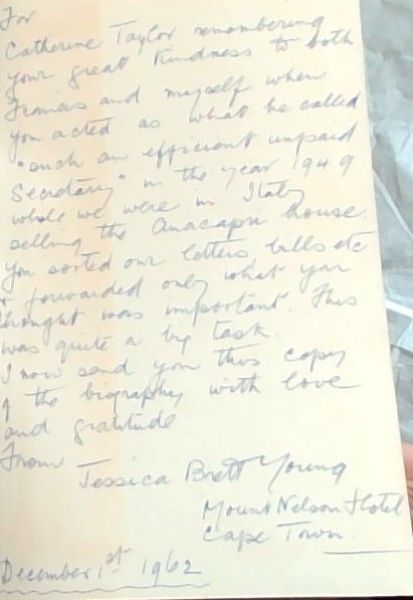 For
Catherine Taylor remembering
your great kindness to both
Francis and myself when
you acted as what he called
"such an efficient unpaid
Secretary" in the year 1949
while we were in Italy
selling the Anacapri house.
You sorted our letters, bills etc
& forwarded only what you
thought was important. This
was quite a big task.
I now send you this copy
of the biography with love
and gratitude
From
Jessica Brett Young
Mount Nelson Hotel
Cape Town.
December 1st 1962